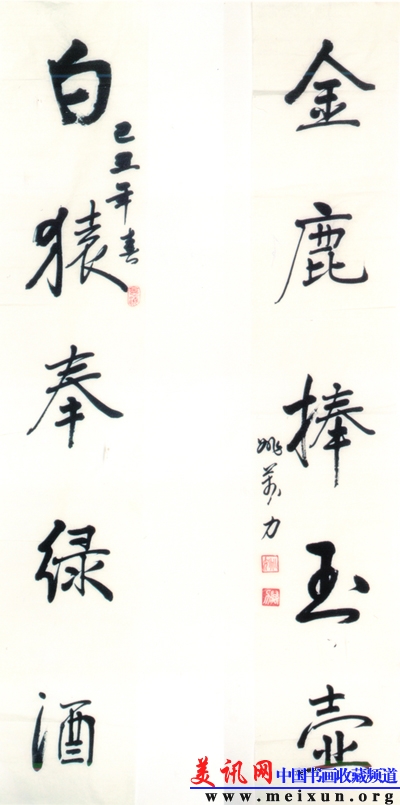 金鹿捧玉壶
姚万力
己丑年春
白猿奉绿酒
美讯网
中国书画收藏频道
www.meixun.org